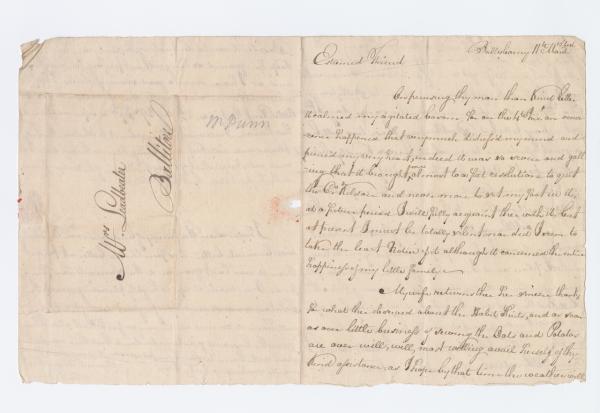 Mrs Leadbeater
Ballitore
M Dunn
Ballykeany 11th March
Esteemed Friend
On perusing thy more than kind letter
it calmed my agitated bosom for on the 4th Inst. an occur
ence happened that very much disturb'd my mind and
pierced my very heart, indeed it was so severe and gall
ing that it brought me almost to a fixt resolution to quit
the Co Kildare and never more to set my foot in it,
at a future period I will fully acquaint thee with the but
at present I must be totally silent nor did I seem to
take the least Notice of it although it concerned the entire
happiness of my little family.
My wife returns thee her sincere thanks
for what thee observed about the Habit Shirts, and as soon
as our little business of sowing the Oats and Potatoes
are over will, will, most willing avail herself of thy
kind assistance, as I hope by that time the weather will